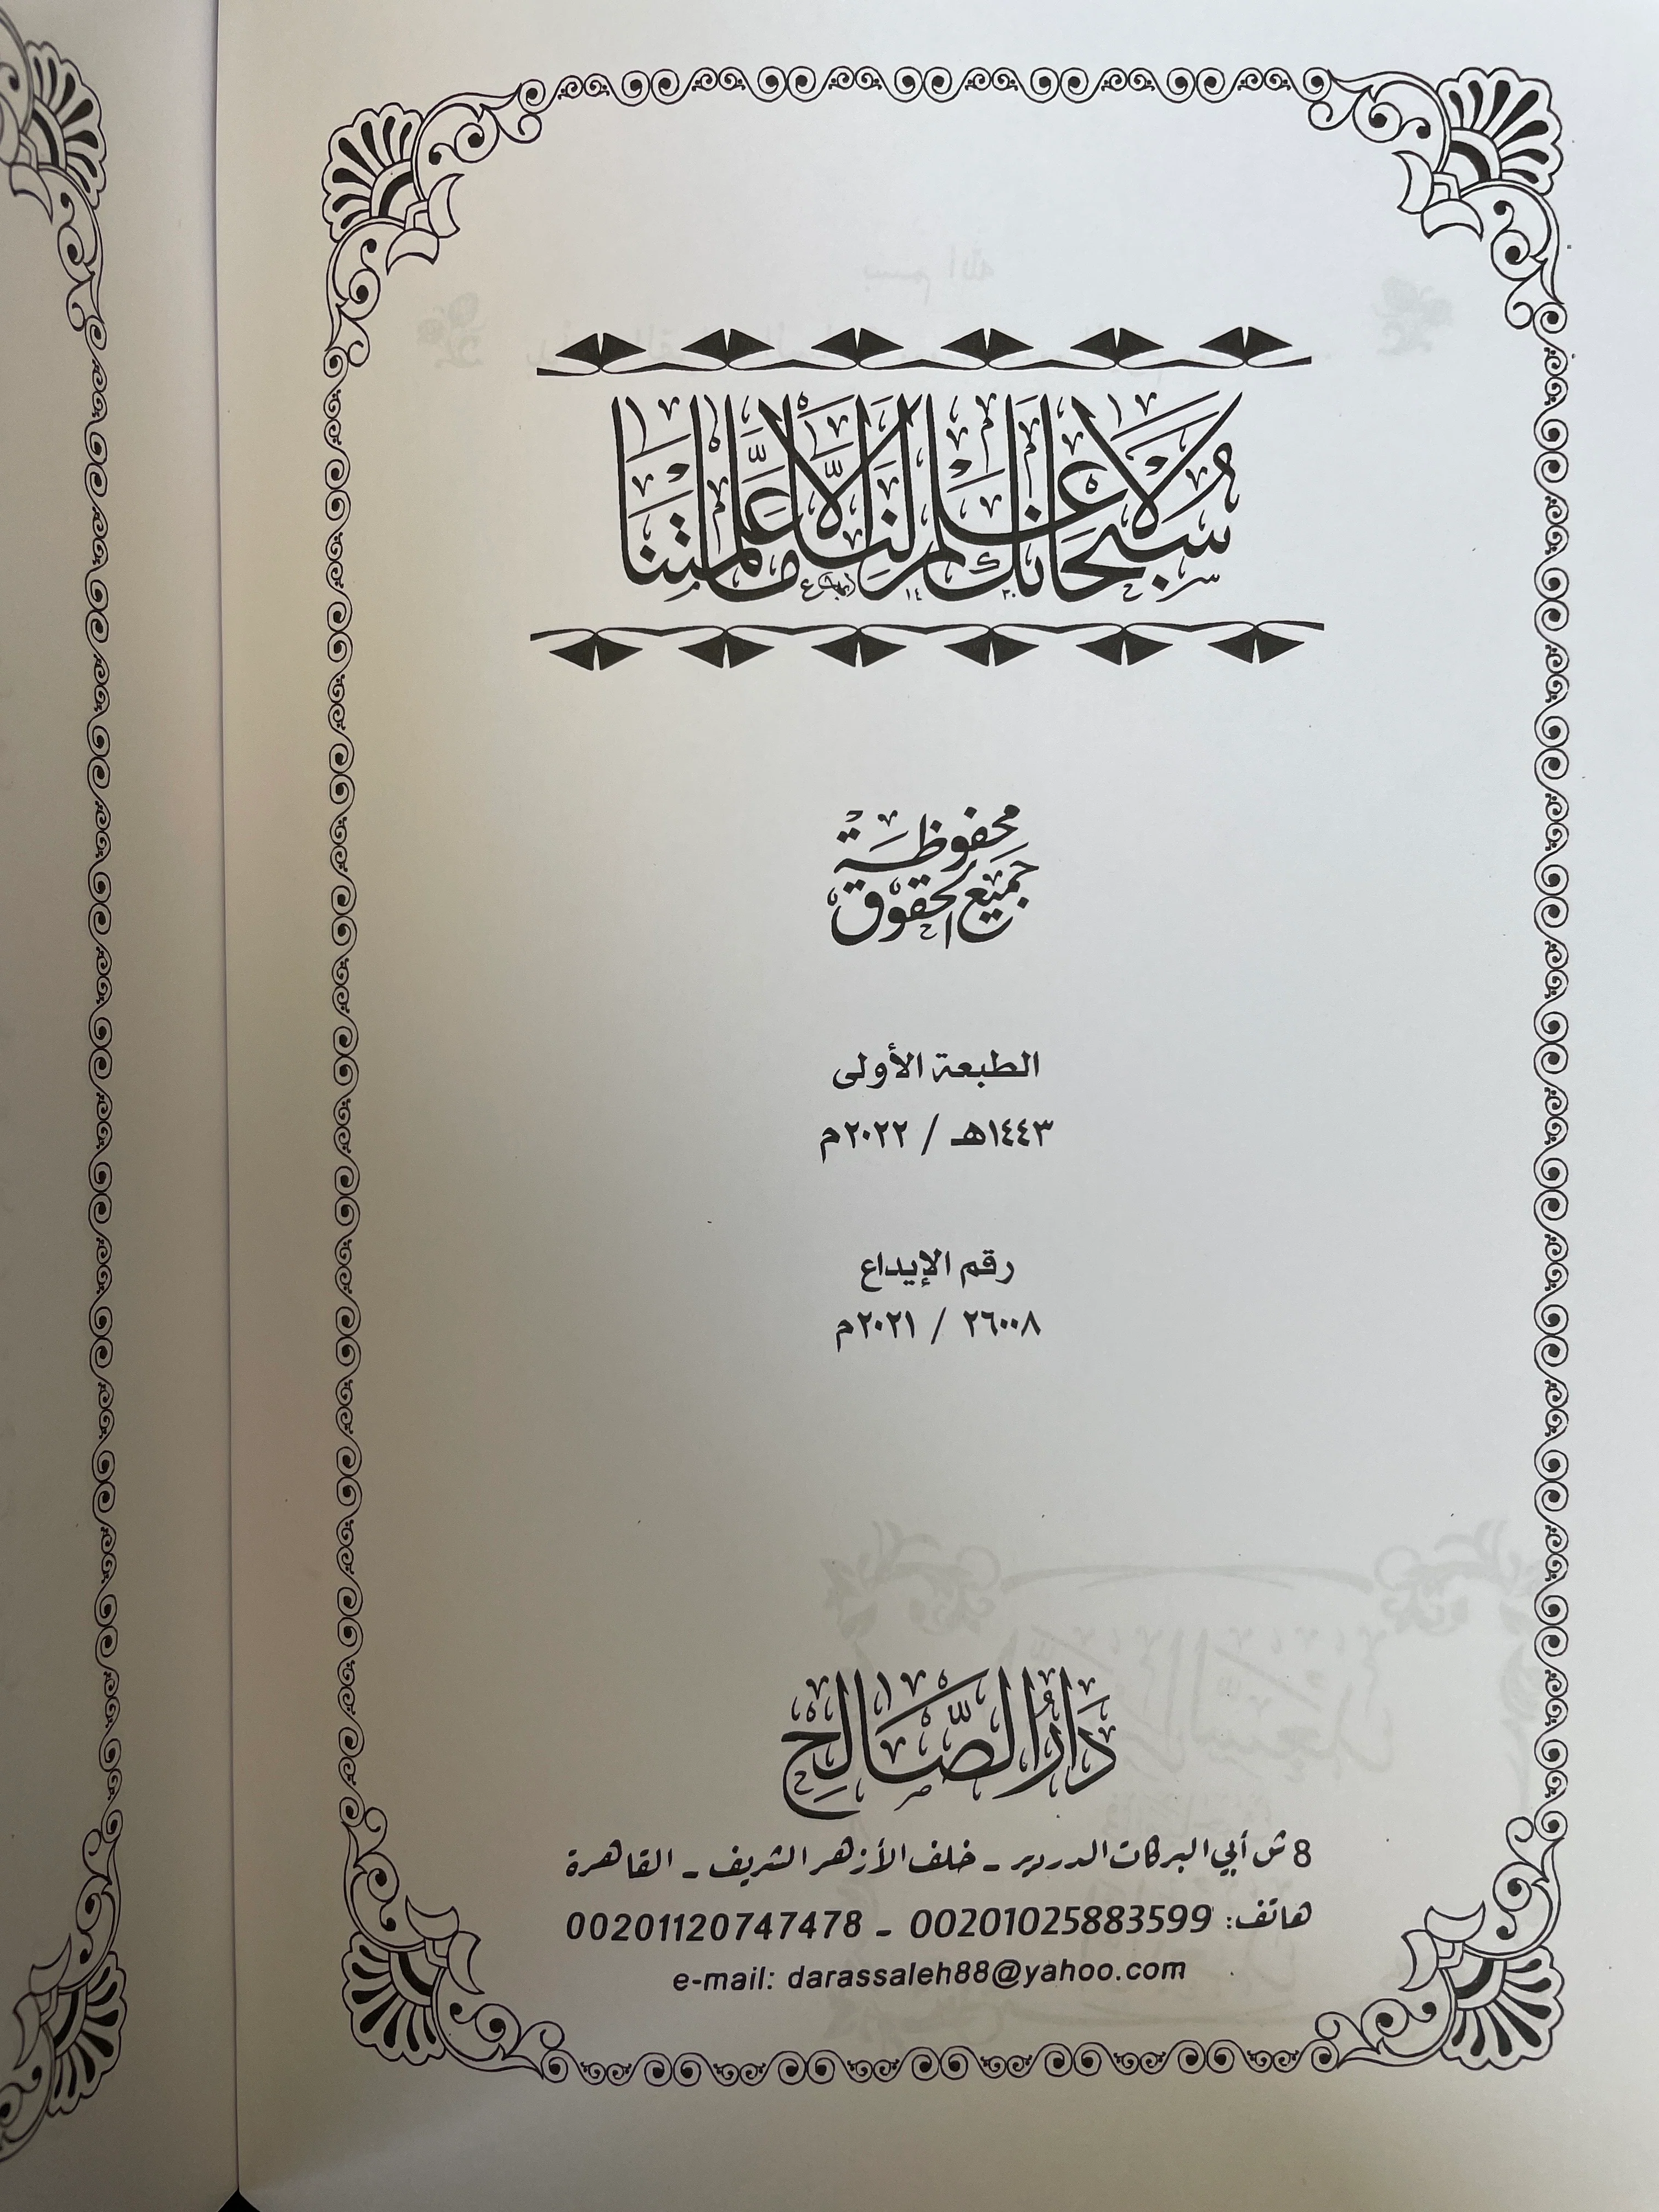 سُبْحَانَكَ لَا عِلْمَ لَنَا إِلَّا مَا عَلَّمْتَنَا
جميع الحقوق محفوظة
الطبعة الأولى
١٤٤٣هـ / ٢٠٢٢م
رقم الإيداع
٢٦٠٠٨ / ٢٠٢١م
دَارُ الصَّالِح
8 ش أبي البركات الدردير - خلف الأزهر الشريف - القاهرة
هاتف: 00201025883599 - 00201120747478
e-mail: darassaleh88@yahoo.com